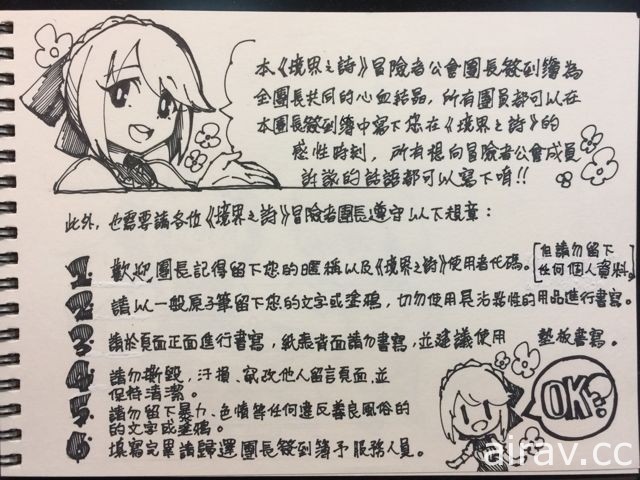 本《境界之詩》冒險者公會團長簽到簿為
全團長共同的心血結晶，所有團員都可以在
本團長簽到簿中寫下您在《境界之詩》的
感性時刻，所有想向冒險者公會成員
訴說的話語都可以寫下唷!!
此外，也需要請各位《境界之詩》冒險者團長遵守以下規章：
1. 歡迎團長記得留下您的暱稱以及《境界之詩》使用者代碼。[但請勿留下
任何個人資料。]
2. 請以一般原子筆留下您的文字或塗鴉，切勿使用具沾黏性的用品進行書寫。
3. 請於頁面正面進行書寫，紙張背面請勿書寫，並建議使用 墊板書寫。
4. 請勿撕毀，汙損、竄改他人留言頁面，並
保持清潔。
5. 請勿留下暴力、色情等任何違反善良風俗的
的文字或塗鴉。
6. 填寫完畢請歸還團長簽到簿予服務人員。
OK?
airav.cc